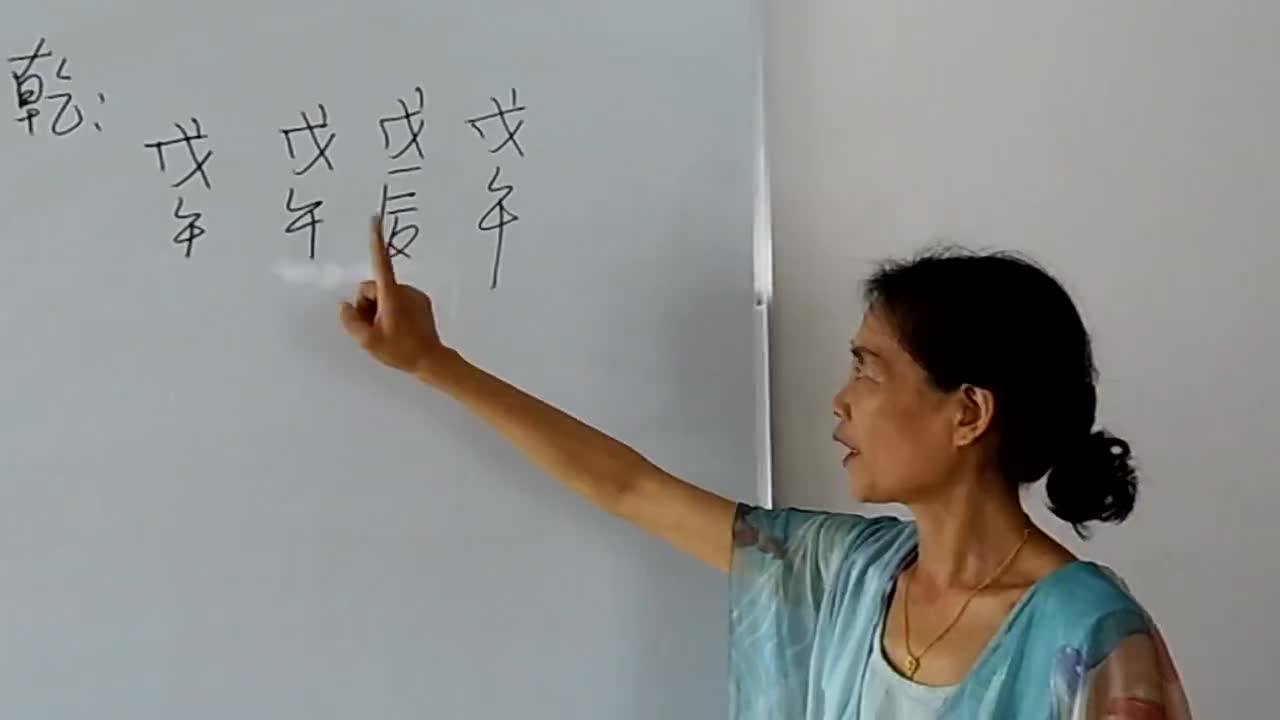 乾:
戊 戊 戊 戊
午 午 辰 午